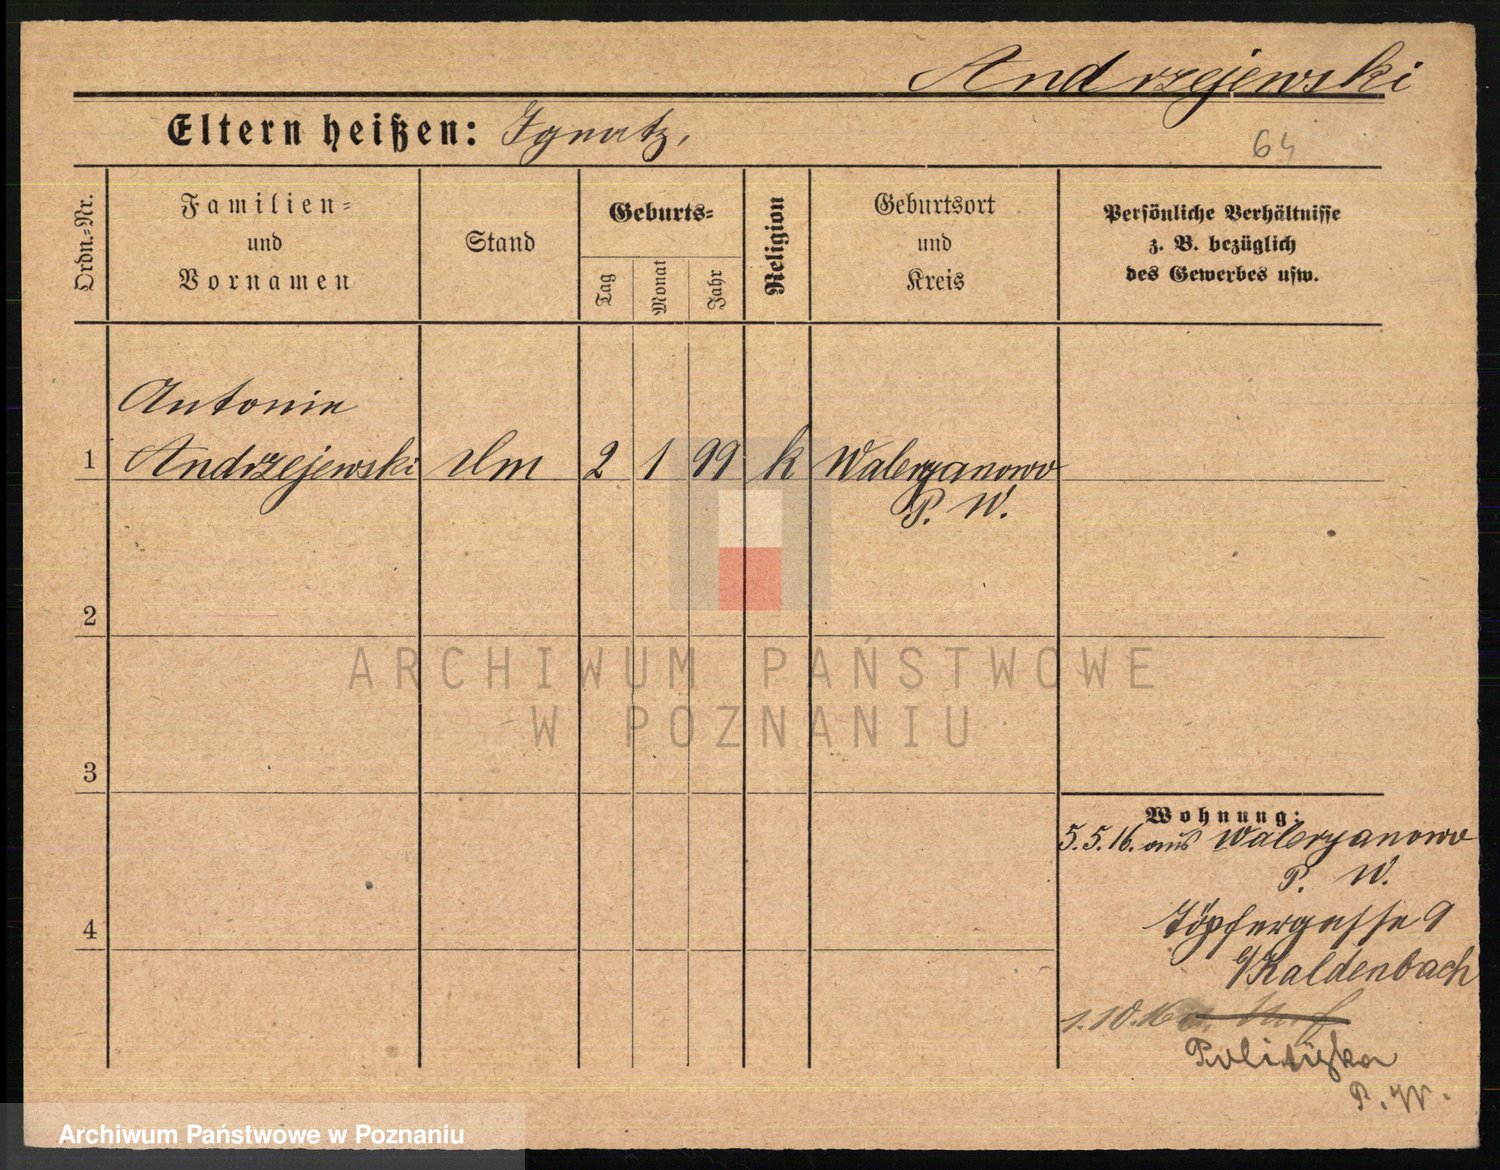 Andrzejewski
Eltern heißen: Ignatz,
64
Ordn.-Nr.
Familien-
und
Vornamen
Stand
Geburts-
Tag
Monat
Jahr
Religion
Geburtsort
und
Kreis
Persönliche Verhältnisse
z. B. bezüglich
des Gewerbes usw.
Antonie
1 Andrzejewski 2 1 99 k Waleryanowo
P. W.
2
3
4
Wohnung:
5.5.16. aus Waleryanowo
P. W.
Töpfergasse 9
b/Kaldenbach
1.10.16
P. W.
ARCHIWUM PAŃSTWOWE
W POZNANIU
Archiwum Państwowe w Poznaniu